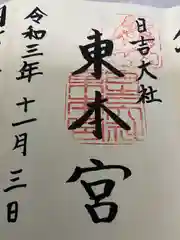 日吉大社
東本宮
令和三年十一月三日